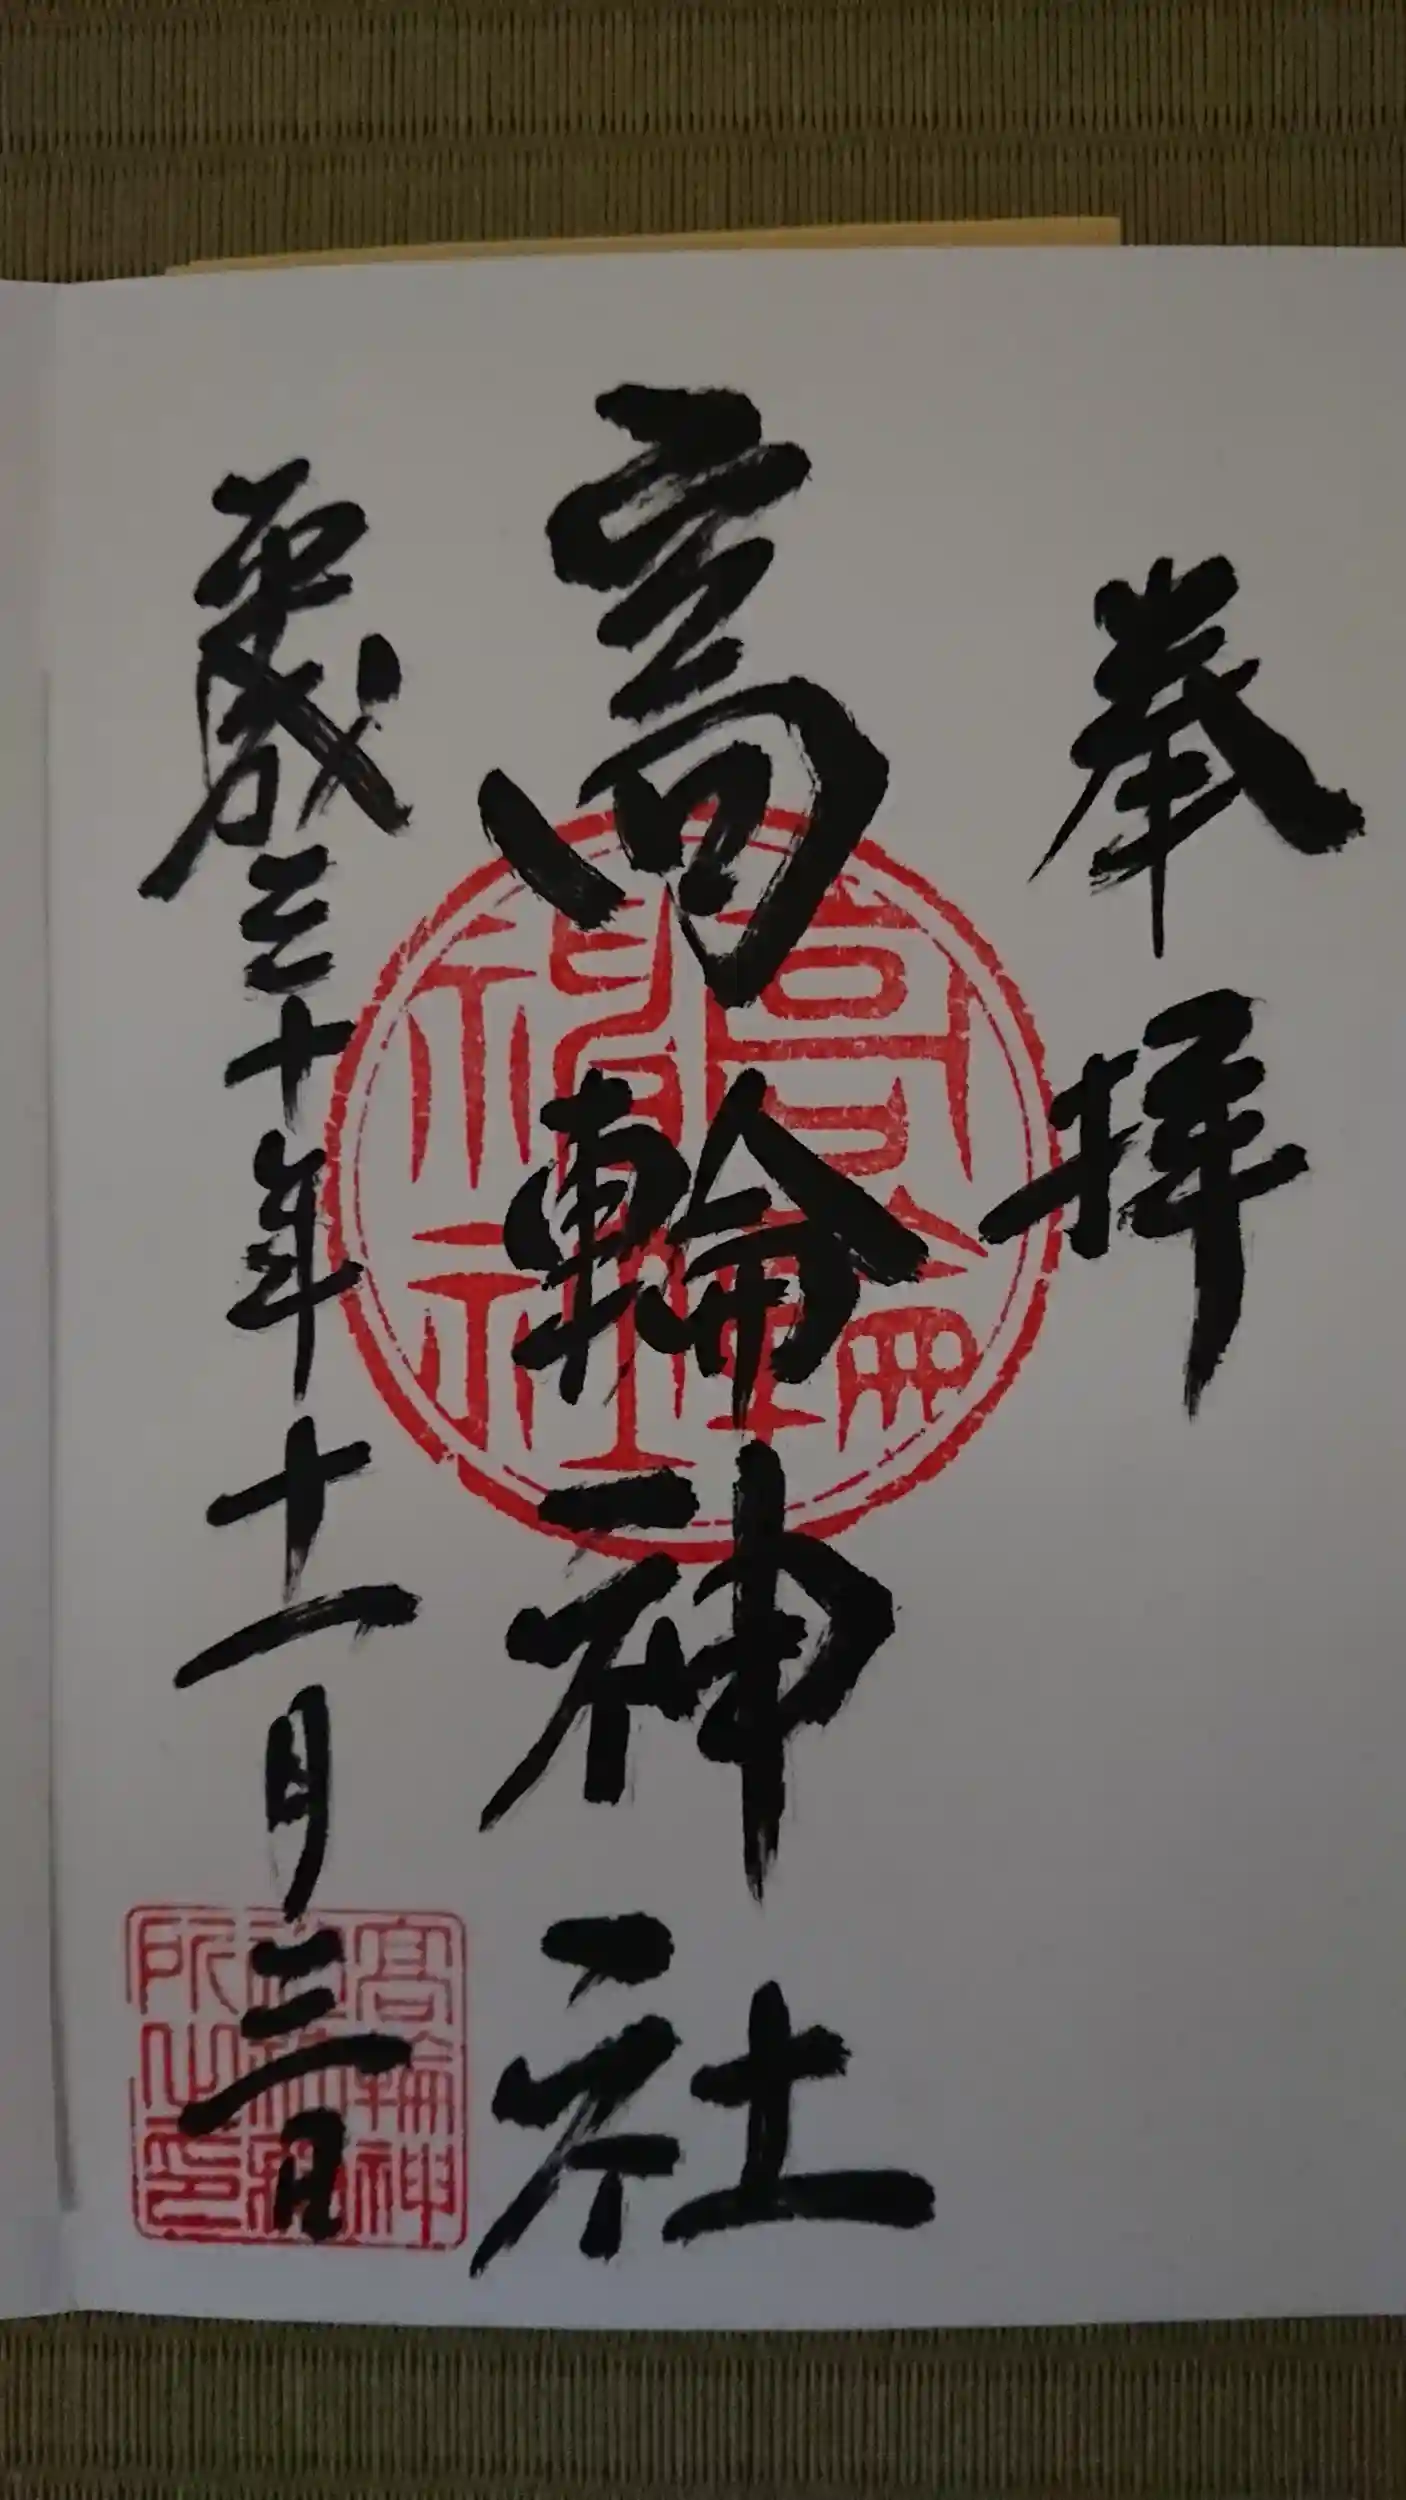 奉拝
高輪神社
平成三十年十一月三日
高輪
神社
高輪神
所之印